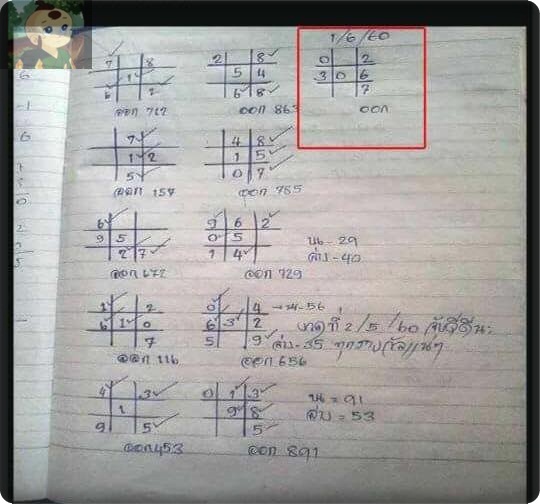 1/6/60
7 8
1
6 2
ออก 712
2 8
5 4
6 8
ออก 863
0 2
3 0 6
7
ออก
7
1 2
5
ออก 157
4 8
1 5
0 7
ออก 785
6
9 5
2 7
ออก 672
9 6 2
0 5
1 4
ออก 729
บน-29
ล่าง-40
1 2
6 1 0
7
ออก 116
0 4
6 3 2
5 9
ออก 656
บน-56
งวดที่ 2/5/60
ล่าง-35
4 3
1
9 5
ออก 453
0 1 3
9 8
5
ออก 891
บน = 91
ล่าง = 53